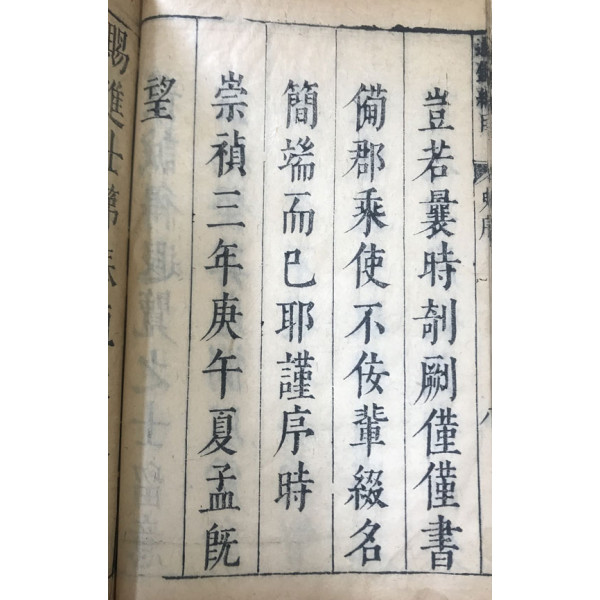 豈若曩時剞劂僅僅書
備郡乘使不佞輩綴名
簡端而已耶謹序時
崇禎三年庚午夏孟旣
望